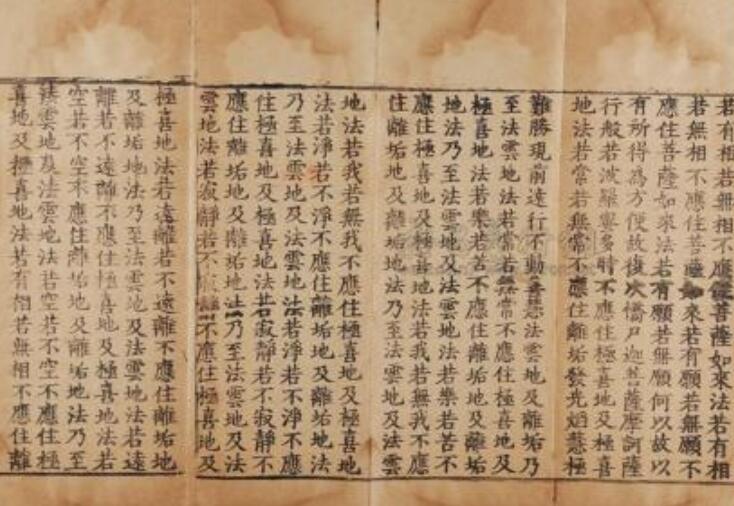 若有相若無相不應住菩薩如來法若有相
若無相不應住菩薩如來若有願若無願不
應住菩薩如來法若有願若無願何以故以
有所得為方便故復次憍尸迦菩薩摩訶薩
行般若波羅蜜多時不應住極喜地及極喜
地法若常若無常不應住離垢發光焰慧極
難勝現前遠行不動善慧法雲地及離垢乃
至法雲地法若常若無常不應住極喜地及
極喜地法若樂若苦不應住離垢地及離垢
地法乃至法雲地及法雲地法若樂若苦不
應住極喜地及極喜地法若我若無我不應
住離垢地及離垢地法乃至法雲地及法雲
地法若我若無我不應住極喜地及極喜地
法若淨若不淨不應住離垢地及離垢地法
乃至法雲地及法雲地法若淨若不淨不應
住極喜地及極喜地法若寂靜若不寂靜不
應住離垢地及離垢地法乃至法雲地及法
雲地法若寂靜若不寂靜不應住極喜地及
極喜地法若遠離若不遠離不應住離垢地
及離垢地法乃至法雲地及法雲地法若遠
離若不遠離不應住極喜地及極喜地法若
空若不空不應住離垢地及離垢地法乃至
法雲地及法雲地法若空若不空不應住極
喜地及極喜地法若有相若無相不應住離